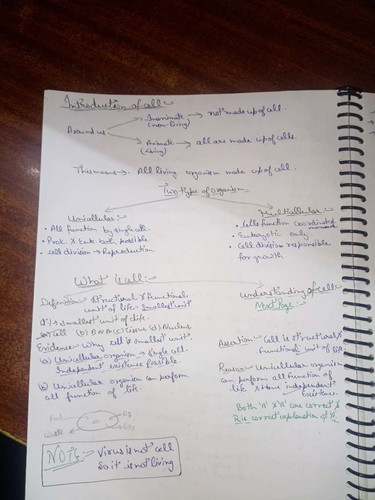 Introduction of cell :-
Inanimate → not made up of cell.
(non-living)
Around us
Animate → all are made up of cells.
(living)
This means → All living organism made up of cell.
Two type of organism
Unicellular :-
• All function by single cell.
• Prok. & Euk. both possible
• cell division → Reproduction
Multicellular :-
• Cells function coordinated
manner
• Eukaryotic only
• Cell division responsible
for growth.
What is cell :-
Definition - Structural & functional
unit of life - Smallest unit
Q:- Smallest unit of life.
(a) Cell (b) DNA (c) Tissue (d) Nucleus
Evidence - Why cell is smallest unit.
(a) Unicellular organism → single cell.
Independent existence possible.
(b) Unicellular organism can perform
all function of life.
Waste
O2
CO2
NOTE:- Virus is not cell
So it is not living
Understanding of cell
Next Page :-
Assertion - Cell is structural &
functional unit of life
Reason - Unicellular organism
can perform all function of
life & have independent
existence.
Both 'A' & 'R' are correct &
R is correct explanation of 'A'